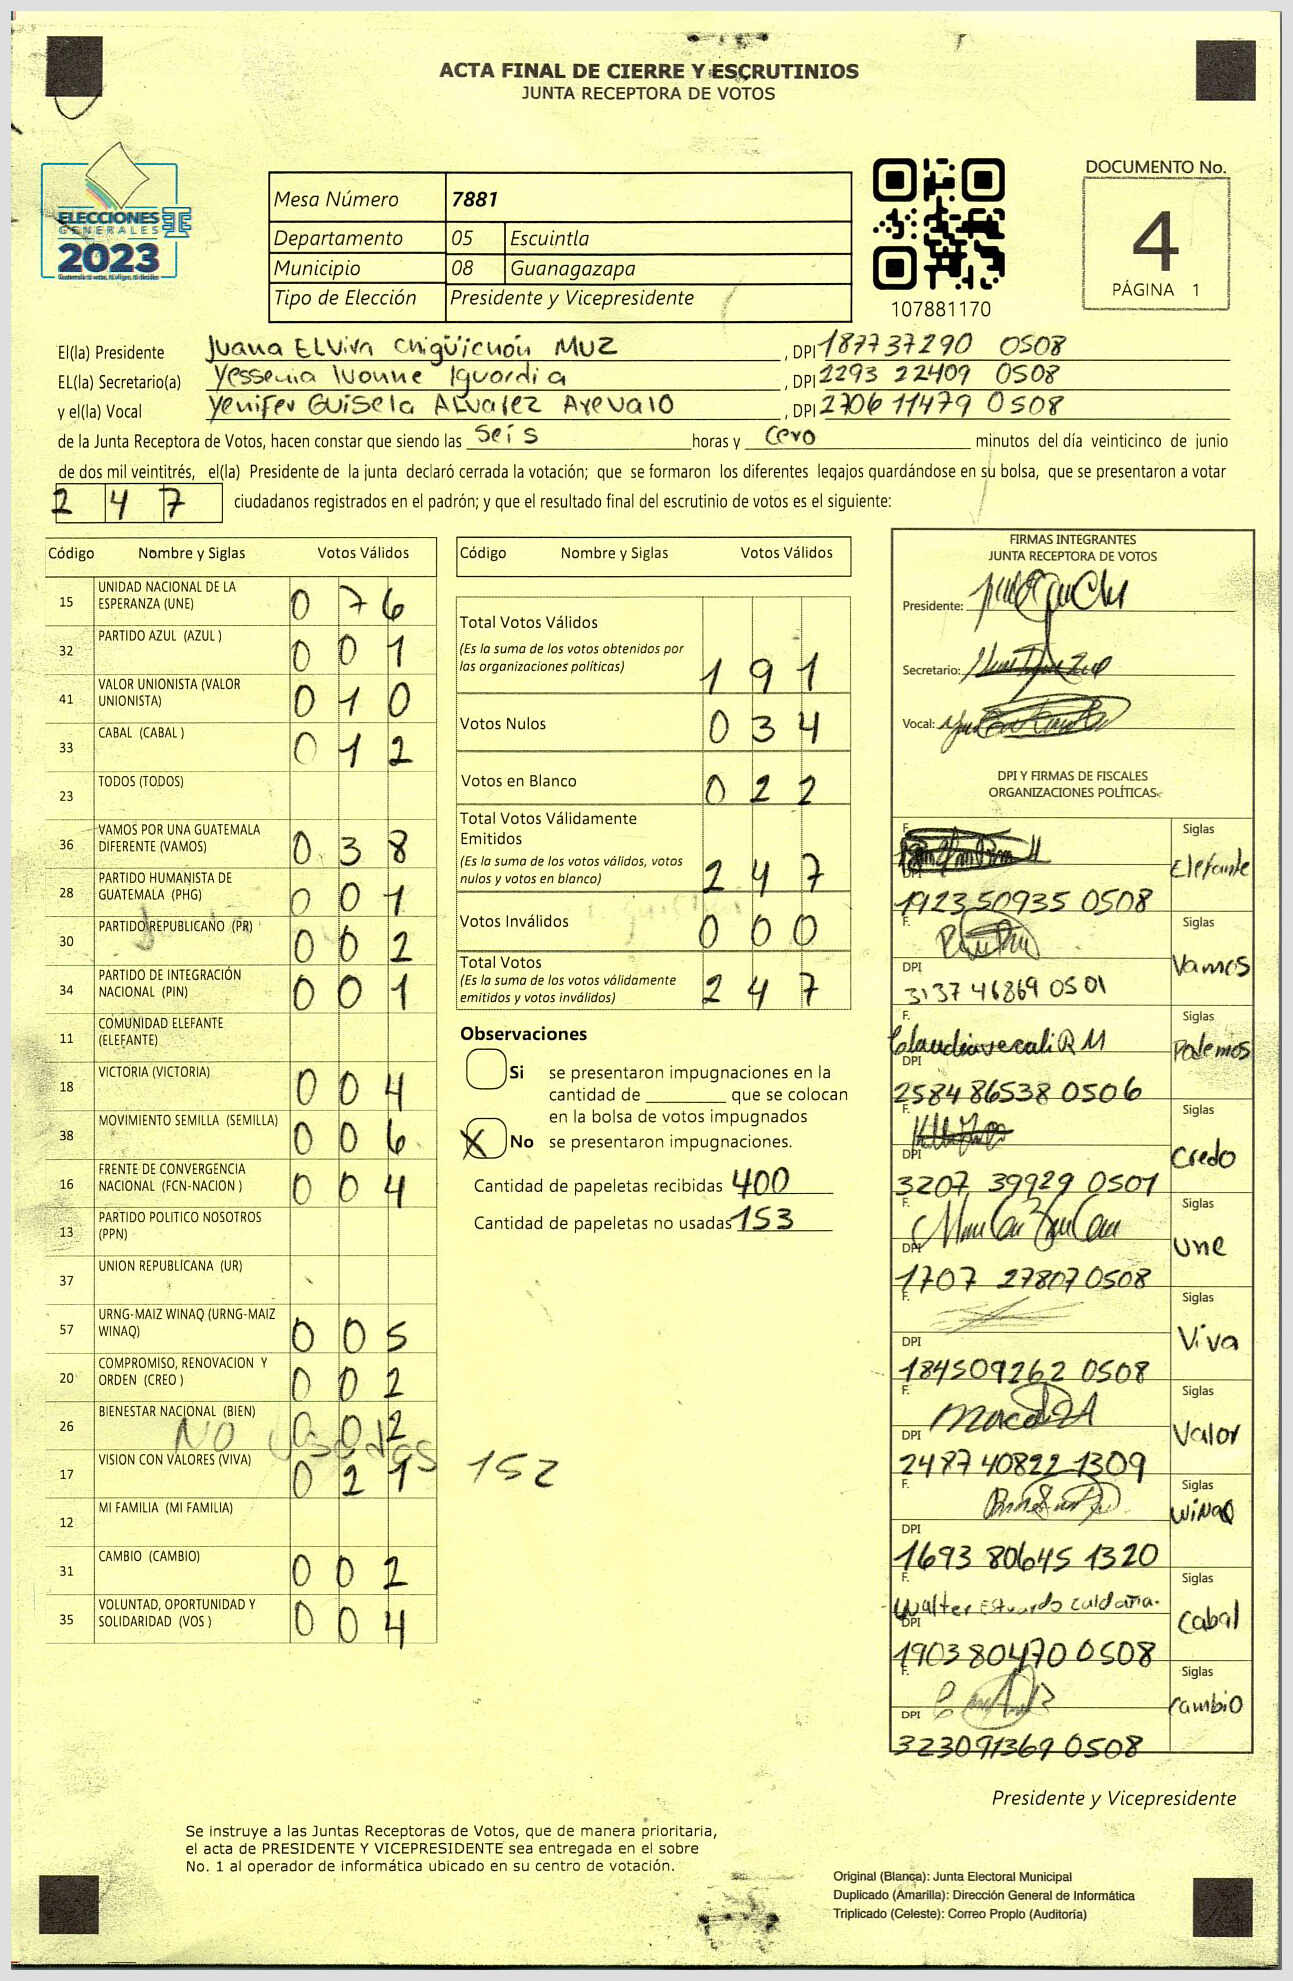 ACTA FINAL DE CIERRE Y ESCRUTINIOS
JUNTA RECEPTORA DE VOTOS
ELECCIONES
GENERALES
2023
Mesa Número 7881
Departamento 05 Escuintla
Municipio 08 Guanagazapa
Tipo de Elección Presidente y Vicepresidente
107881170
DOCUMENTO No.
4
PÁGINA 1
El(la) Presidente Juana ELVira Chigüichón MUZ , DPI 187737290 0508
EL(la) Secretario(a) Yessenia Ivonne Iguardia , DPI 2293 22409 0508
y el(la) Vocal Yenifer Guisela Alvarez Arevalo , DPI 2706 11479 0508
de la Junta Receptora de Votos, hacen constar que siendo las seis horas y cero minutos del día veinticinco de junio
de dos mil veintitrés, el(la) Presidente de la junta declaró cerrada la votación; que se formaron los diferentes legajos guardándose en su bolsa, que se presentaron a votar
247 ciudadanos registrados en el padrón; y que el resultado final del escrutinio de votos es el siguiente:
Código Nombre y Siglas Votos Válidos
15 UNIDAD NACIONAL DE LA ESPERANZA (UNE) 076
32 PARTIDO AZUL (AZUL ) 001
41 VALOR UNIONISTA (VALOR UNIONISTA) 010
33 CABAL (CABAL ) 012
23 TODOS (TODOS)
36 VAMOS POR UNA GUATEMALA DIFERENTE (VAMOS) 038
28 PARTIDO HUMANISTA DE GUATEMALA (PHG) 001
30 PARTIDO REPUBLICANO (PR) 002
34 PARTIDO DE INTEGRACIÓN NACIONAL (PIN) 001
11 COMUNIDAD ELEFANTE (ELEFANTE)
18 VICTORIA (VICTORIA) 004
38 MOVIMIENTO SEMILLA (SEMILLA) 006
16 FRENTE DE CONVERGENCIA NACIONAL (FCN-NACION ) 004
13 PARTIDO POLITICO NOSOTROS (PPN)
37 UNION REPUBLICANA (UR)
57 URNG-MAIZ WINAQ (URNG-MAIZ WINAQ) 005
20 COMPROMISO, RENOVACION Y ORDEN (CREO ) 002
26 BIENESTAR NACIONAL (BIEN) 002
NO usadas 152
17 VISION CON VALORES (VIVA) 021
12 MI FAMILIA (MI FAMILIA)
31 CAMBIO (CAMBIO) 002
35 VOLUNTAD, OPORTUNIDAD Y SOLIDARIDAD (VOS ) 004
Código Nombre y Siglas Votos Válidos
Total Votos Válidos
(Es la suma de los votos obtenidos por
las organizaciones políticas) 191
Votos Nulos 034
Votos en Blanco 022
Total Votos Válidamente
Emitidos
(Es la suma de los votos válidos, votos
nulos y votos en blanco) 247
Votos Inválidos 000
Total Votos
(Es la suma de los votos válidamente
emitidos y votos inválidos) 247
Observaciones
Si se presentaron impugnaciones en la
cantidad de ________ que se colocan
en la bolsa de votos impugnados
X No se presentaron impugnaciones.
Cantidad de papeletas recibidas 400
Cantidad de papeletas no usadas 153
FIRMAS INTEGRANTES
JUNTA RECEPTORA DE VOTOS
Presidente:
Secretario:
Vocal:
DPI Y FIRMAS DE FISCALES
ORGANIZACIONES POLÍTICAS
F. Siglas
Elefante
DPI
1923 50935 0508
F. Siglas
Vamos
DPI
3137 46869 0501
F. Siglas
Podemos
DPI
2584 86538 0506
F. Siglas
Credo
DPI
3207 39929 0501
F. Siglas
Une
DPI
1707 27807 0508
F. Siglas
Viva
DPI
184509262 0508
F. Siglas
Valor
DPI
2487 40822 1309
F. Siglas
WINAQ
DPI
1693 80645 1320
F. Siglas
Walter Estuardo Caldana.
Cabal
DPI
1903 80470 0508
F. Siglas
Cambio
DPI
323091369 0508
Presidente y Vicepresidente
Se instruye a las Juntas Receptoras de Votos, que de manera prioritaria,
el acta de PRESIDENTE Y VICEPRESIDENTE sea entregada en el sobre
No. 1 al operador de informática ubicado en su centro de votación.
Original (Blanca): Junta Electoral Municipal
Duplicado (Amarilla): Dirección General de Informática
Triplicado (Celeste): Correo Propio (Auditoría)